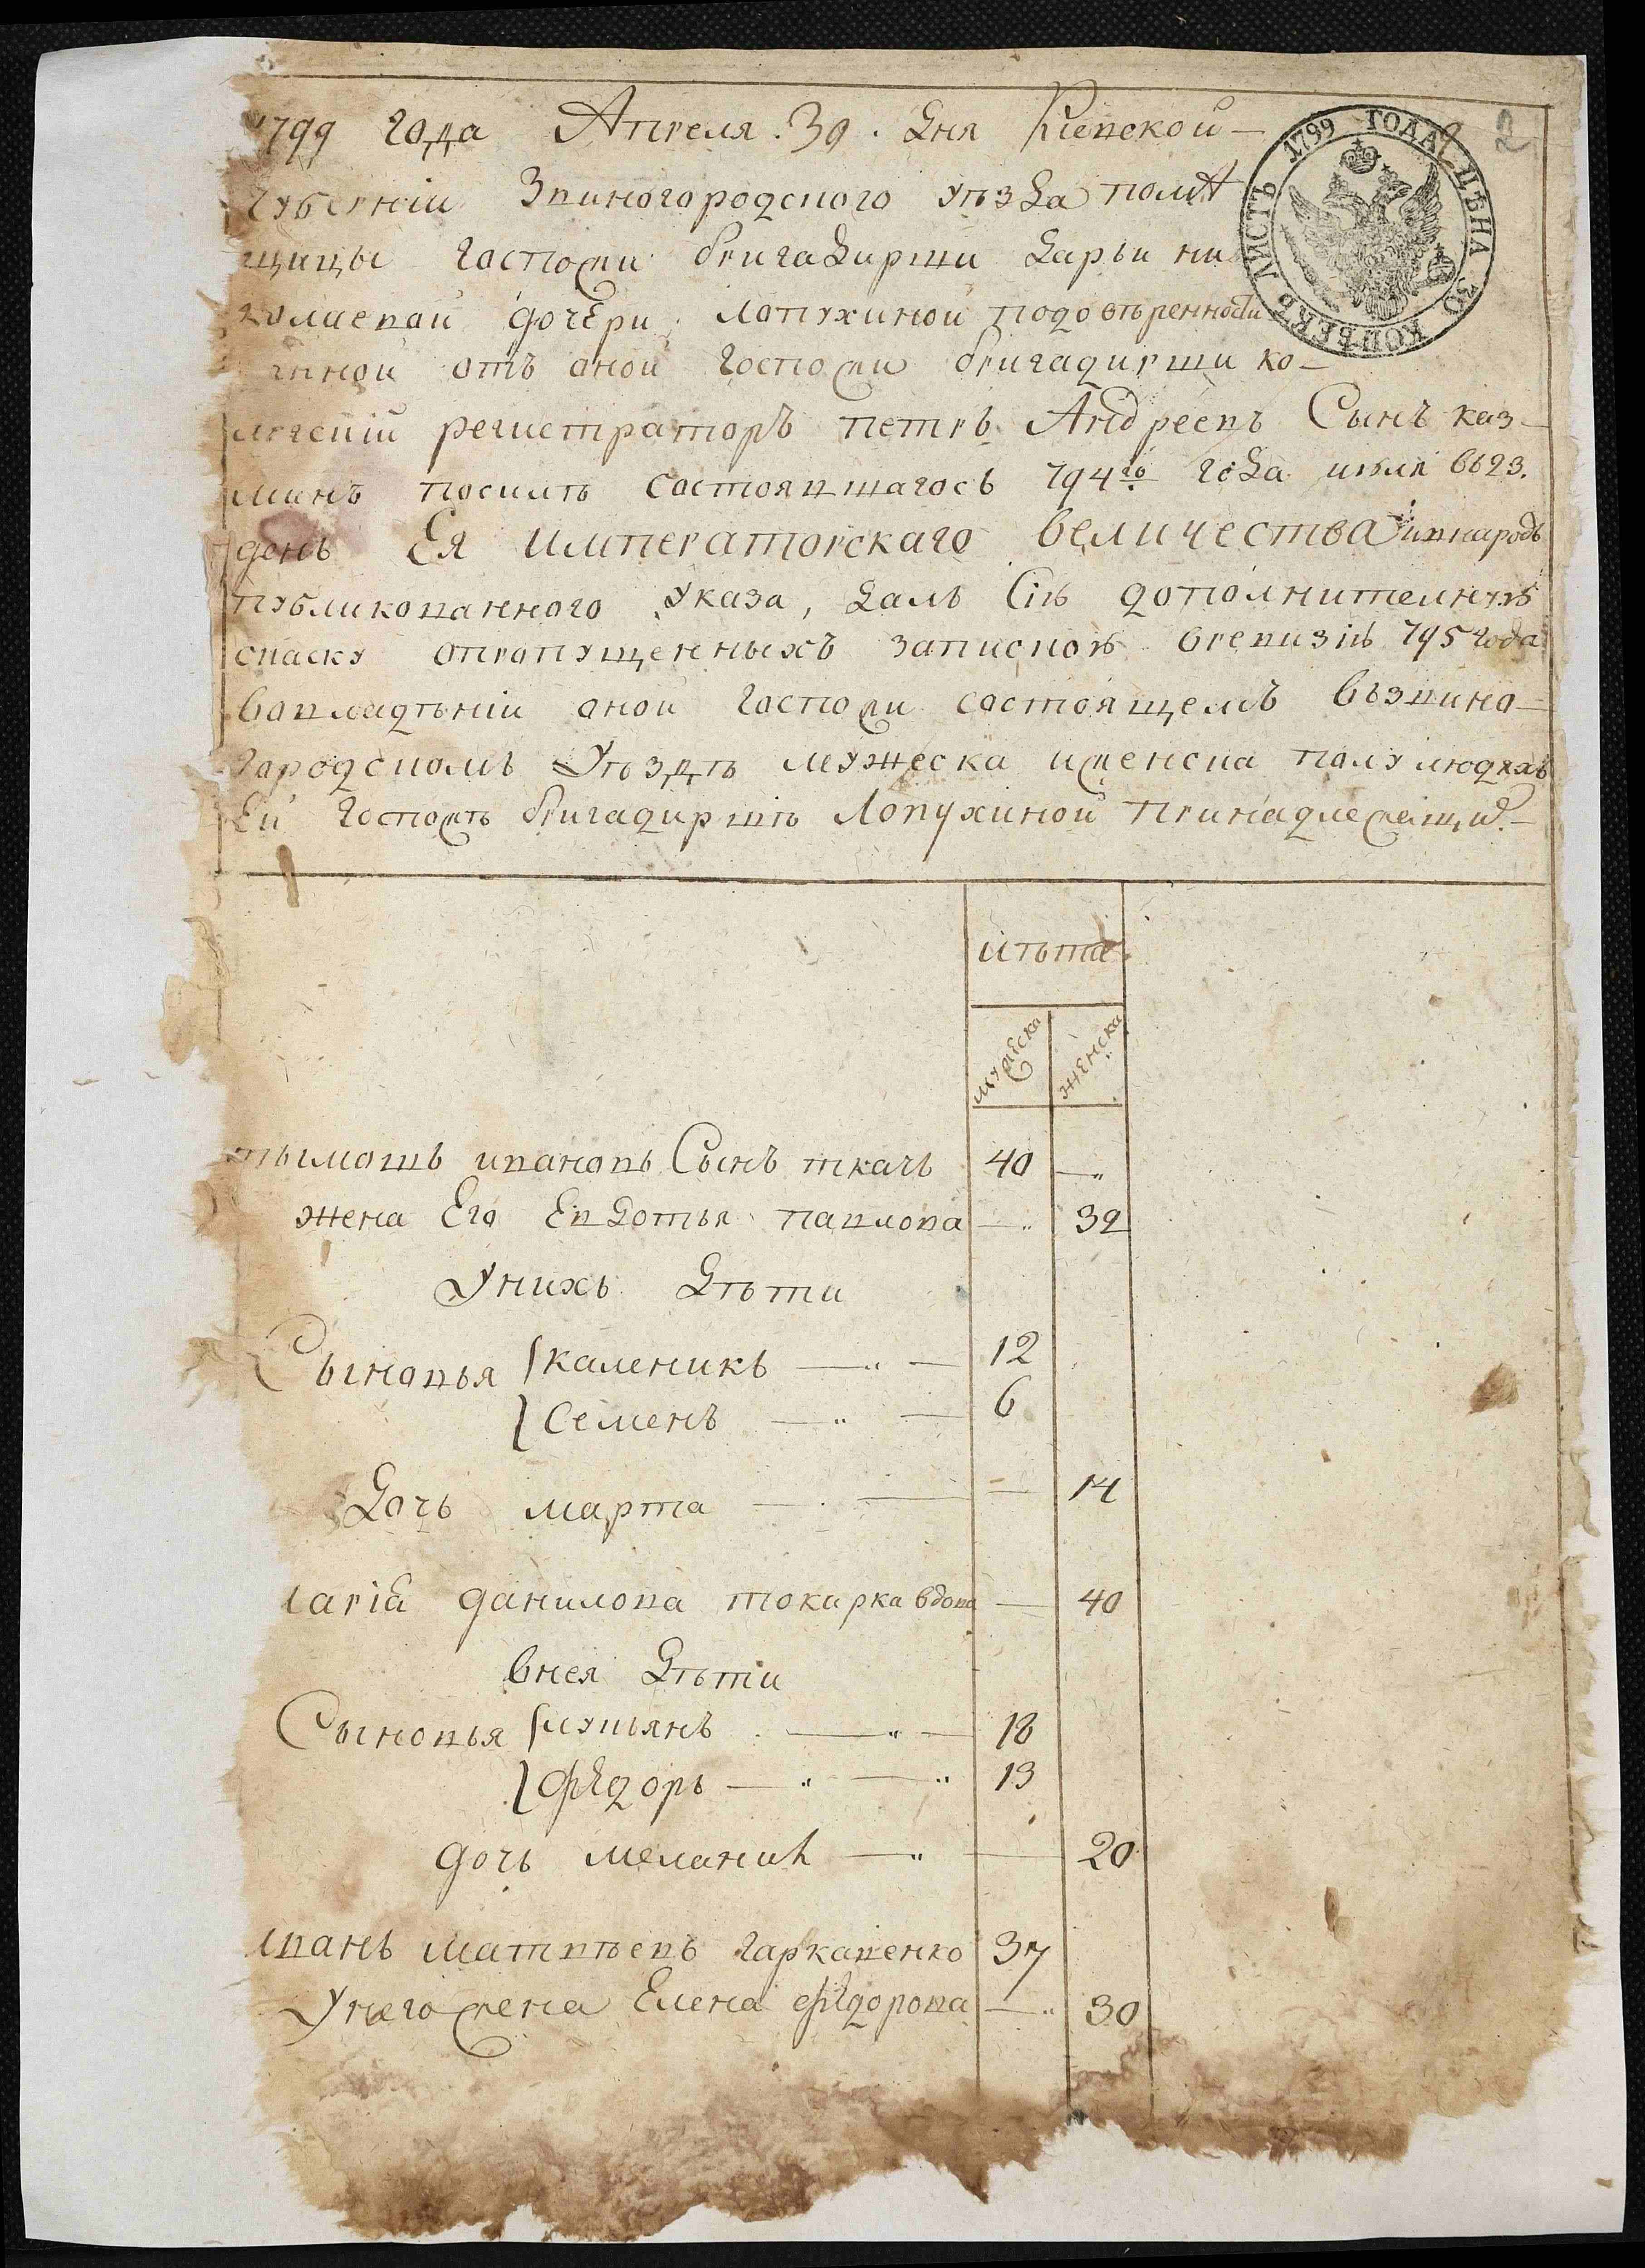 1799 года Апреля 30 дня Киевской
2
1799 ГОДА ЦѢНА 30 КОПѢЕКЪ ЛИСТЪ
губерніи Звиногородского уѣзда помѣ
щицы госпожи бригадирши дарьи ни
колаевой дочери Лопухиной по доверенности
отъ оной госпожи бригадирши ко
лежскій регистраторъ петръ Андреевъ Сынъ каз
минъ посилѣ состоявшагось 794го года июля въ 23.
день Ея императорскаго величества и въ народъ
публикованного указа, далъ Сію дополнителную
скаску опропущенныхъ записною в ревизію 795 года
во владѣніи оной госпожи состоящемъ въ звино
городскомъ Уѣздѣ мужеска и женска полу людяхъ
Ей госпожѣ бригадиршѣ Лопухиной принадлежащихъ
лѣта
мужеска женска
тымошъ ивановъ Сынъ ткачъ 40 —
жена Его Евдотья павлова — 32
У нихъ Дѣти
Сыновья каленикъ — 12
Семенъ — 6
Дочь марта — 14
данилова токарка вдова — 40
в нея Дѣти
Сыновья лукьянъ — 18
фѣдоръ — 13
дочь мелания — 20
иванъ матвѣевъ гаркавенко 37
У него жена Елена фѣдорова — 30